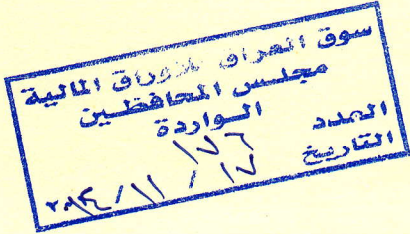 سوق العراق للاوراق المالية
مجلس المحافظين
الواردة
العدد ١٧٦
التاريخ ١٧ / ١١ / ٢٠١٤